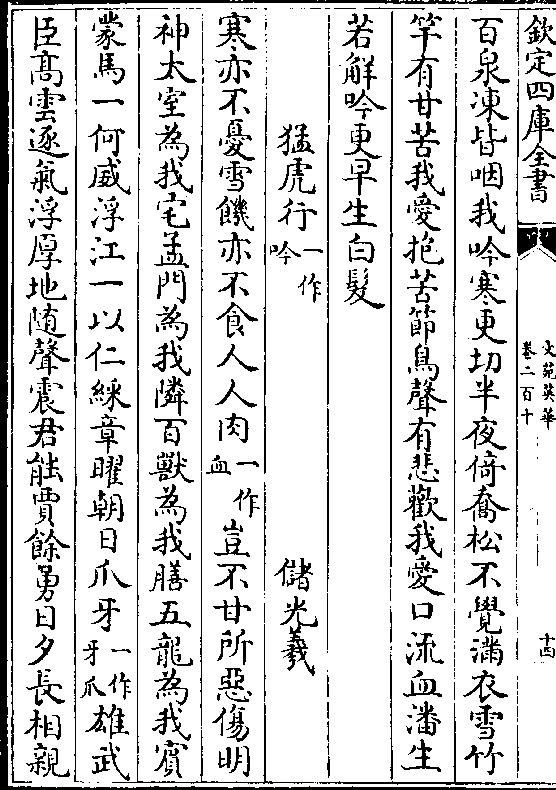 欽定四庫全書
文苑英華
卷二百十
十四
百泉凍皆咽我吟寒更切半夜倚喬松不覺滿衣雪竹
竿有甘苦我愛抱苦節鳥聲有悲歡我愛口流血潘生
若解吟更早生白髮
猛虎行一作吟 儲光羲
寒亦不憂雪饑亦不食人人肉一作血豈不甘所惡傷明
神太室為我宅孟門為我隣百獸為我膳五龍為我賓
蒙馬一何威浮江一以仁綵章曜朝日爪牙一作牙爪雄武
臣高雲逐氣浮厚地随聲震君能賈餘勇日夕長相親